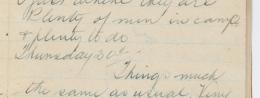 just where they are
Plenty of men in camp
& plenty to do
Thursday 30th
Things much
the same as usual. Very